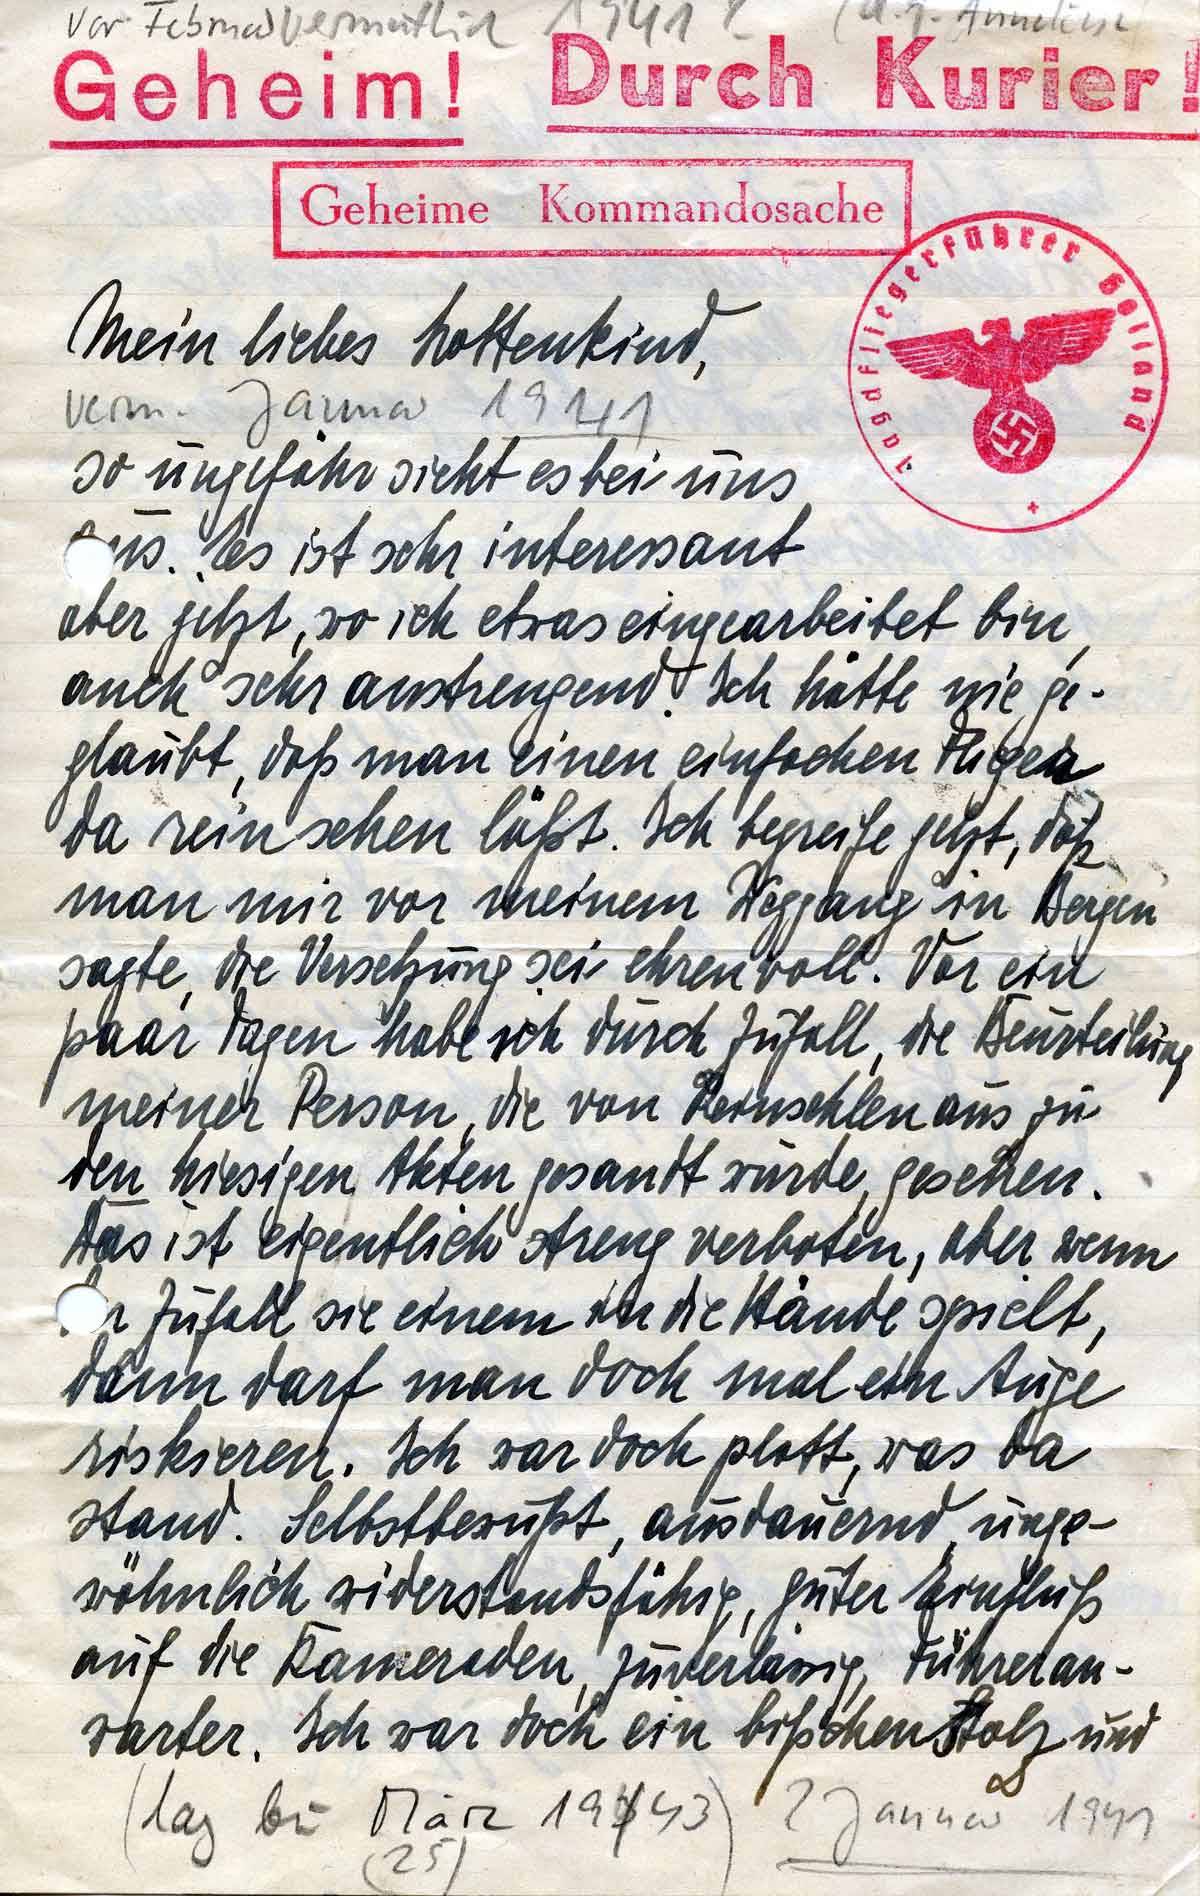 Vor Februar vermutlich 1941 ? (a. g. Anneliese)
Geheim! Durch Kurier!
Geheime Kommandosache
Jagdfliegerführer Holland
Mein liebes Mottenkind,
verm. Januar 1941
so ungefähr sieht es bei uns
aus. Es ist sehr interessant
aber jetzt, wo ich etwas eingearbeitet bin,
auch sehr anstrengend. Ich hätte nie ge-
glaubt, daß man einen einfachen Flieger
da rein sehen läßt. Ich begreife jetzt, daß
man mir vor meinem Weggang in Bergen
sagte, die Versetzung sei ehrenvoll. Vor ein
paar Tagen habe ich durch Zufall, die Beurteilung
meiner Person, die von Reinsehlen aus zu
den hiesigen Akten gesandt wurde, gesehen.
Das ist eigentlich streng verboten, aber wenn
der Zufall sie einem in die Hände spielt,
dann darf man doch mal ein Auge
riskieren. Ich war doch platt, was da
stand. Selbstbewußt, ausdauernd, unge-
wöhnlich widerstandsfähig, guter Einfluß
auf die Kameraden, zuverlässig, Führeran-
wärter. Ich war doch ein bißchen stolz und
(lag bei März 1943) ? Januar 1941
(25)